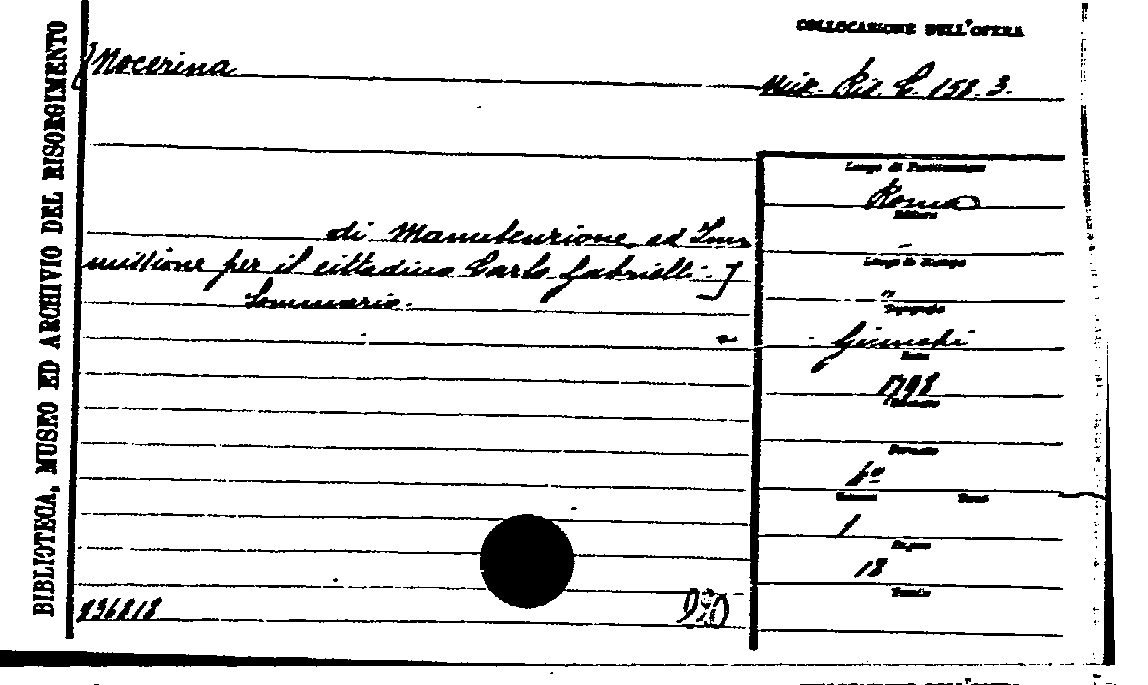 BIBLIOTECA, MUSEO ED ARCHIVIO DEL RISORGIMENTO
COLLOCAZIONE DELL'OPERA
[Nocerina
Mis. Ris. C. 158. 3.
di Manutenzione ed Im
missione per il cittadino Carlo Gabrielli.]
Sommario.
Luogo di Pubblicazione
Roma
Editore
–
Luogo di Stampa
"
Tipografia
Giunchi
Data
1798
Formato
8º
Volumi
1
Pagine
18
Tavole
836818